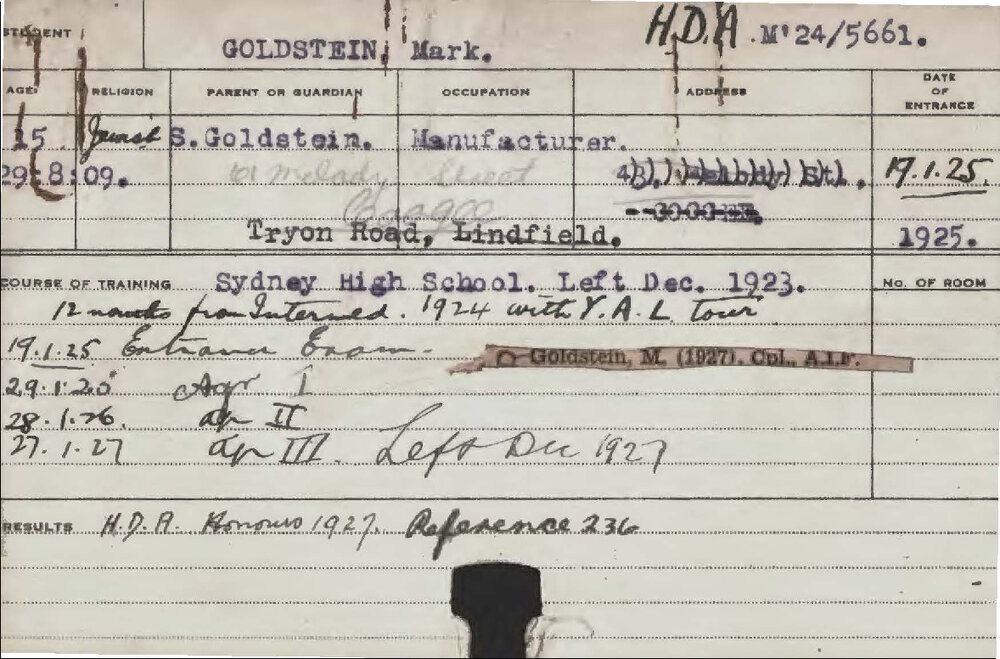 STUDENT GOLDSTEIN, Mark. H.D.A. M'24/5661.
AGE RELIGION PARENT OR GUARDIAN OCCUPATION ADDRESS DATE OF ENTRANCE
15. Jewish S.Goldstein. Manufacturer.
29.8.09. Street St. 19.1.25.
Coogee COOGEE.
Tryon Road, Lindfield. 1925.
COURSE OF TRAINING Sydney High School. Left Dec. 1923. No. OF ROOM
12 months from Intermed. 1924 with Y.A.L. Tour
19.1.25 Entrance Exam.
Goldstein, M. (1927). Cpl., A.I.F.
29.1.25 Agr I
28.1.26. Agr II
27.1.27 Agr III. Left Dec 1927
RESULTS H.D.A. Honours 1927. Reference 236